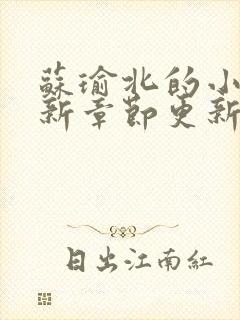 蘇瑜北的小
新章節更新
日出江南紅